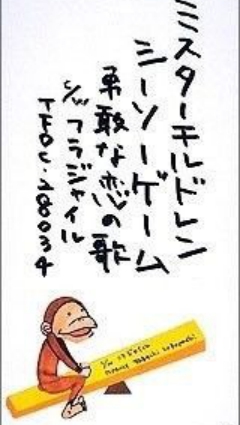 ミスターチルドレン
シーソーゲーム
勇敢な恋の歌
c/w フラジャイル
TFDC-28034